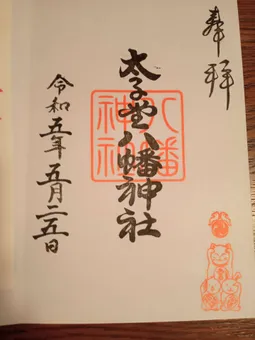 奉拝
太子堂八幡神社
八幡
神社
令和五年五月二五日